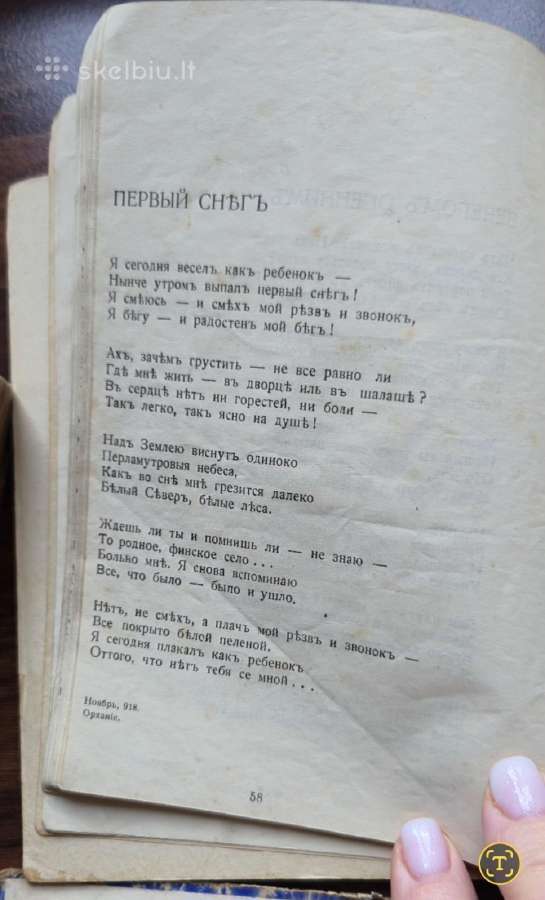 skelbiu.lt
ПЕРВЫЙ СНѢГЪ
Я сегодня веселъ какъ ребенокъ —
Нынче утромъ выпалъ первый снѣгъ!
Я смѣюсь — и смѣхъ мой рѣзвъ и звонокъ,
Я бѣгу — и радостенъ мой бѣгъ!
Ахъ, зачѣмъ грустить — не все равно ли
Гдѣ мнѣ жить — въ дворцѣ иль въ шалашѣ?
Въ сердцѣ нѣтъ ни горестей, ни боли —
Такъ легко, такъ ясно на душѣ!
Надъ Землею виснутъ одиноко
Перламутровыя небеса,
Какъ во снѣ мнѣ грезится далеко
Бѣлый Сѣверъ, бѣлые лѣса.
Ждешь ли ты и помнишь ли — не знаю —
То родное, финское село...
Больно мнѣ. Я снова вспоминаю
Все, что было — было и ушло.
Нѣтъ, не смѣхъ, а плачъ мой рѣзвъ и звонокъ —
Все покрыто бѣлой пеленой.
Я сегодня плакалъ какъ ребенокъ
Оттого, что нѣтъ тебя се мной...
Ноябрь, 918.
Орханіе.
58
T